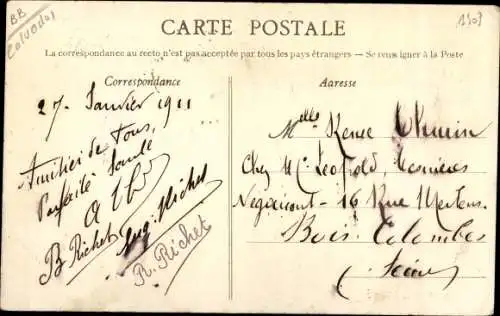 BB
Calvados
1303
CARTE POSTALE
La correspondance au recto n'est pas acceptée par tous les pays étrangers — Se renseigner à la Poste
Correspondance
Adresse
27 Janvier 1911
Amitiés de Tous,
Parfaite Santé
B Richet
Aug. Richet
R. Richet
Melle Renée Thurin
Chez Mr Léopold,
Négociant - 16 Rue Mertens
Bois-Colombes
(Seine)